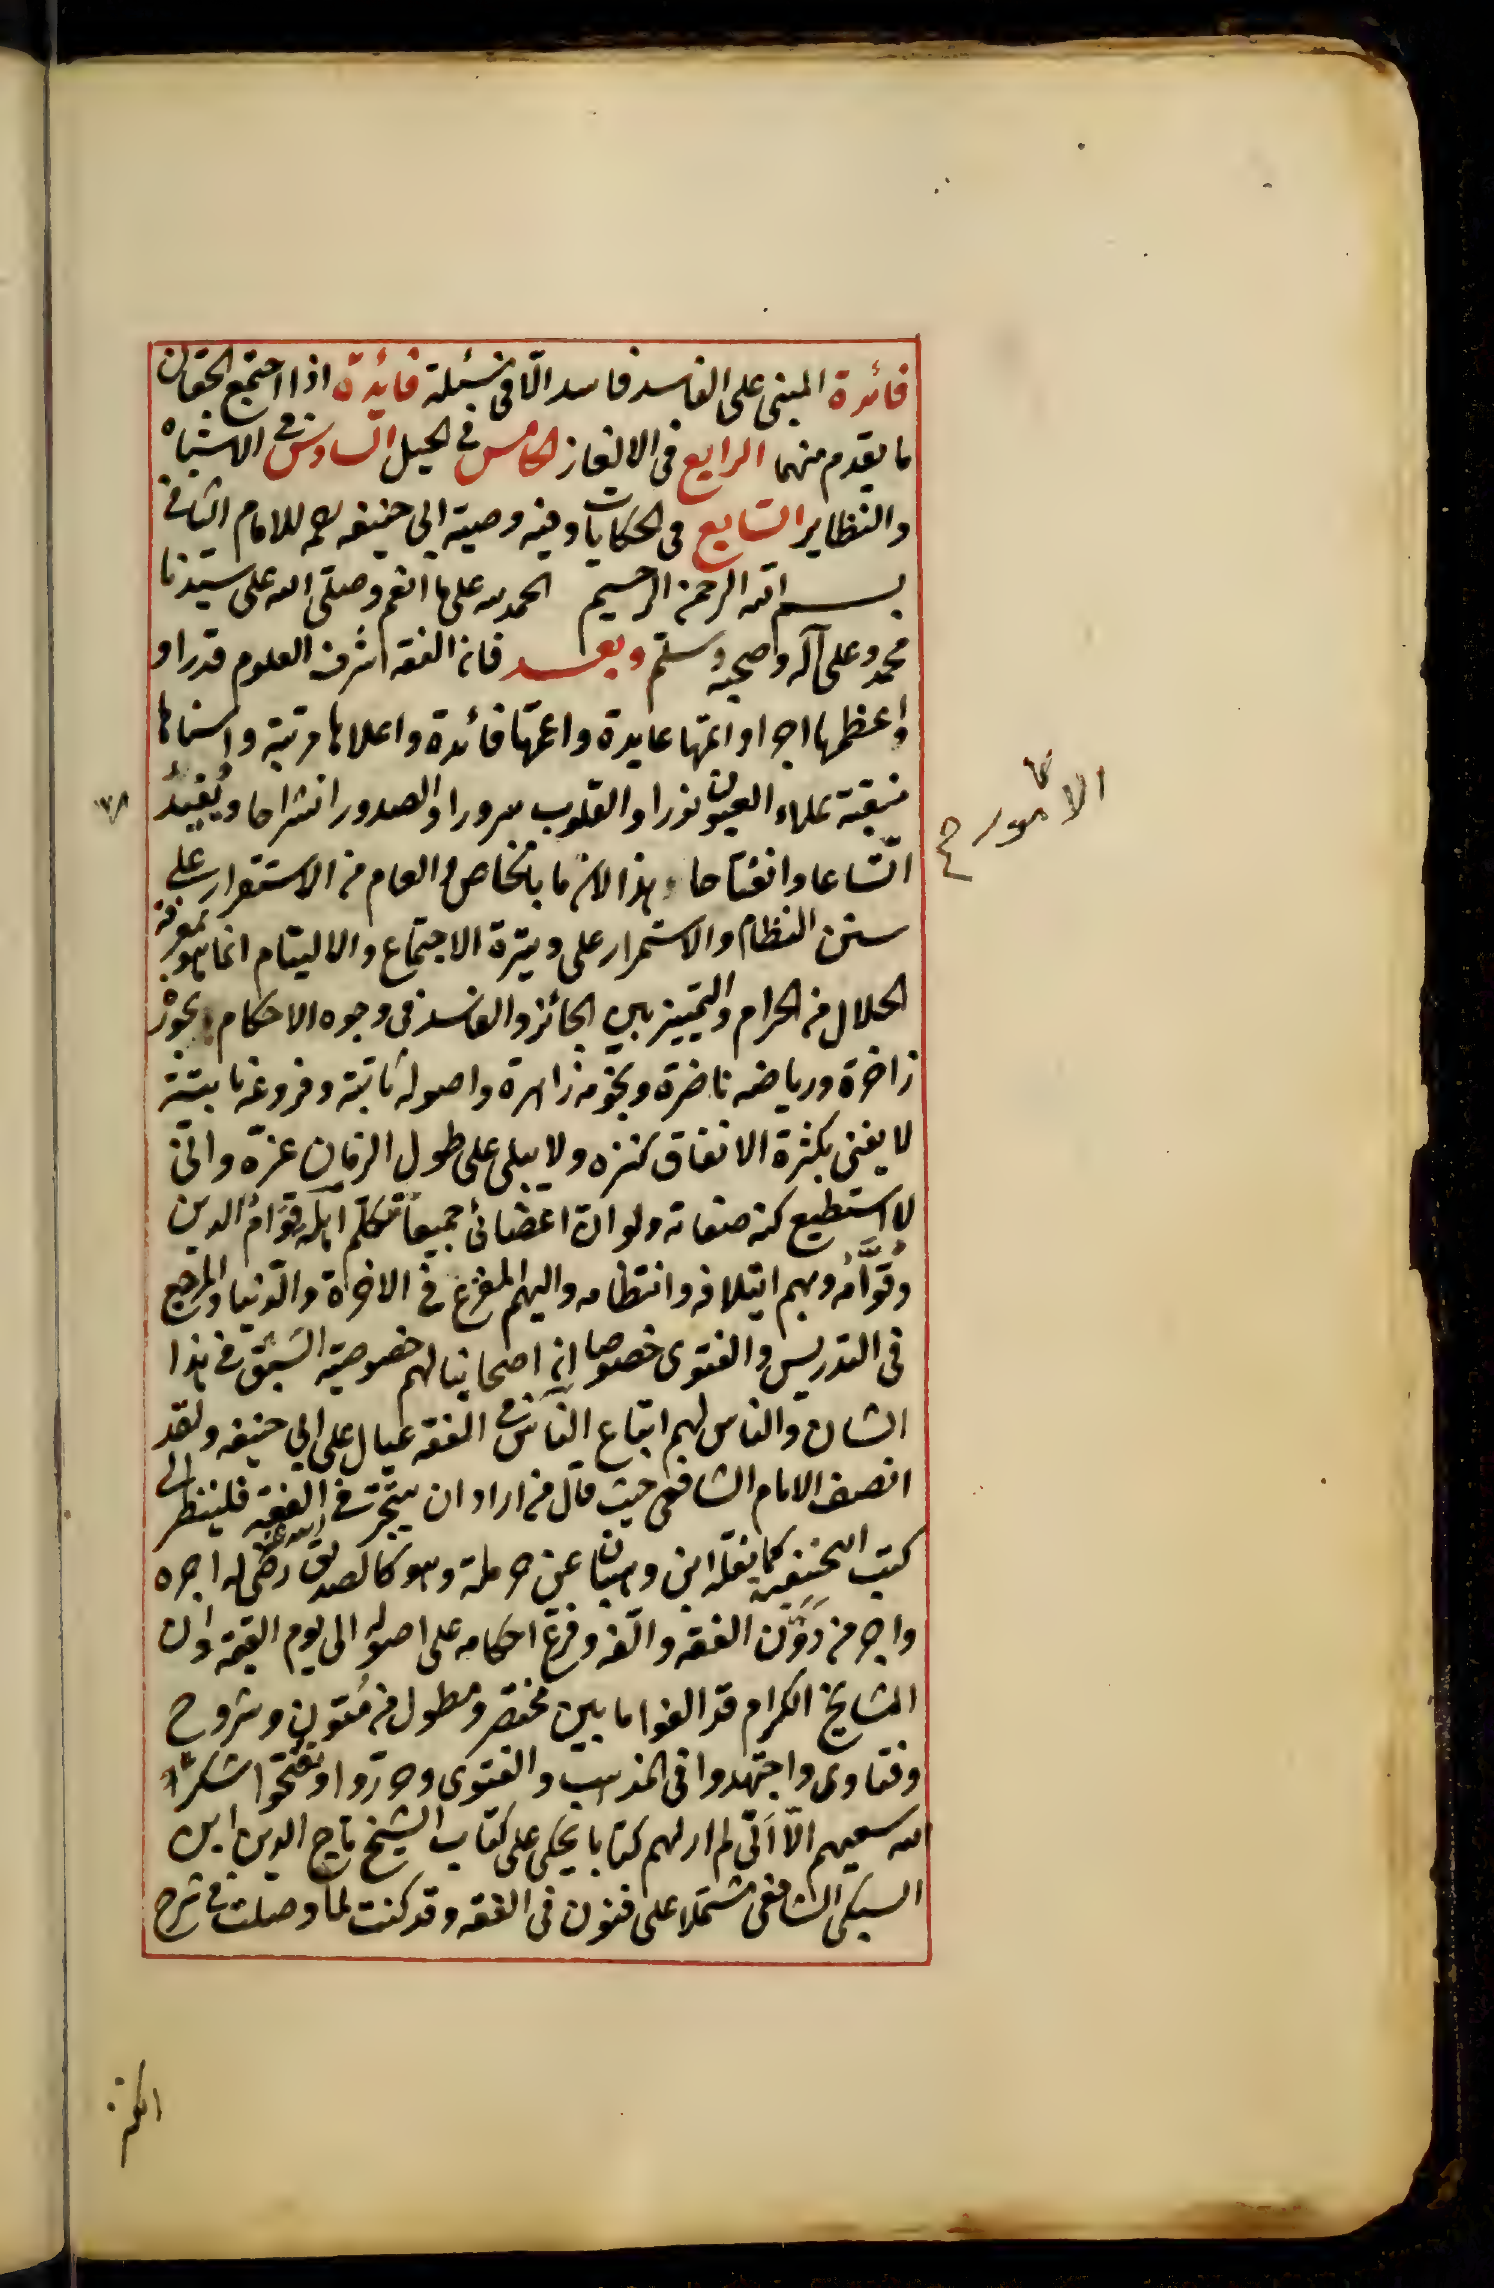 فائدة المبنى على الفاسد فاسد الّا فى مسئلة فايدة اذا اجتمع الحقان
ما يقدم منهما الرابع فى الالغاز الخامس فى الحيل السادس فى الاشباه
والنظاير السابع فى الحكايات وفيه وصية ابى حنيفه للامام الثانى
بسم الله الرحمن الرحيم الحمد لله على ما انعم وصلّى الله على سيّدنا
محمد وعلى آله وصحبه وسلّم وبعد فان الفقه اشرف العلوم قدرا و
واعظمها اجرا واتمّها عايدة واعمّها فائدة واعلاها مرتبة واسناها
منقبة يملاء العيون نورا والقلوب سرورا والصدور انشراحا ويُفيدُ
الامور ح
اتّساعا وانفتاحا هذا لان ما بالخاص والعام من الاستقرار على
سنن النظام والاستمرار على وتيرة الاجتماع والاليتام انما هو بمعرفة
الحلال من الحرام والتمييز بين الجائز والفاسد فى وجوه الاحكام بحوره
زاخرة ورياضه ناضرة ونجومه زاهرة واصوله ثابتة وفروعه نابتة
لا يفنى بكثرة الانفاق كنزه ولا يبلى على طول الزمان عزّه وانّى
لا استطيع كنه صفاته ولو انّ اعضائى جميعا تتكلّم اهله قوام الدين
وقوّامه وبهم ايتلافه وانتظامه واليهم المفزع فى الاخرة والدّنيا والمرجع
فى التدريس والفتوى خصوصا ان اصحابنا لهم خصوصية السَبق فى هذا
الشان والناس لهم اتباع النّاس فى الفقه عيال على ابى حنيفه ولقد
انصف الامام الشافعى حيث قال من اراد ان يتبحّر فى الفقه فلينظر الى
كتب ابى حنيفه كما نقله ابن وهبان عن حرملة وهو كالصديق رضى الله عنه له اجره
واجر من دَوَّن الفقه والّفه وفرّع احكامه على اصوله الى يوم القيمة وان
المشايخ الكرام قد الفوا ما بين مختصر ومطول من مُتون وشروح
وفتاوى واجتهدوا فى المذهب والفتوى وحرّروا ونقّحوا شكر
الله سعيهم الّا انّى لم ار لهم كتابا يحكى على كتاب الشيخ تاج الدين ابن
السبكى الشافعى مشتملا على فنون فى الفقه وقد كنت لما وصلت فى شرح
الكنز